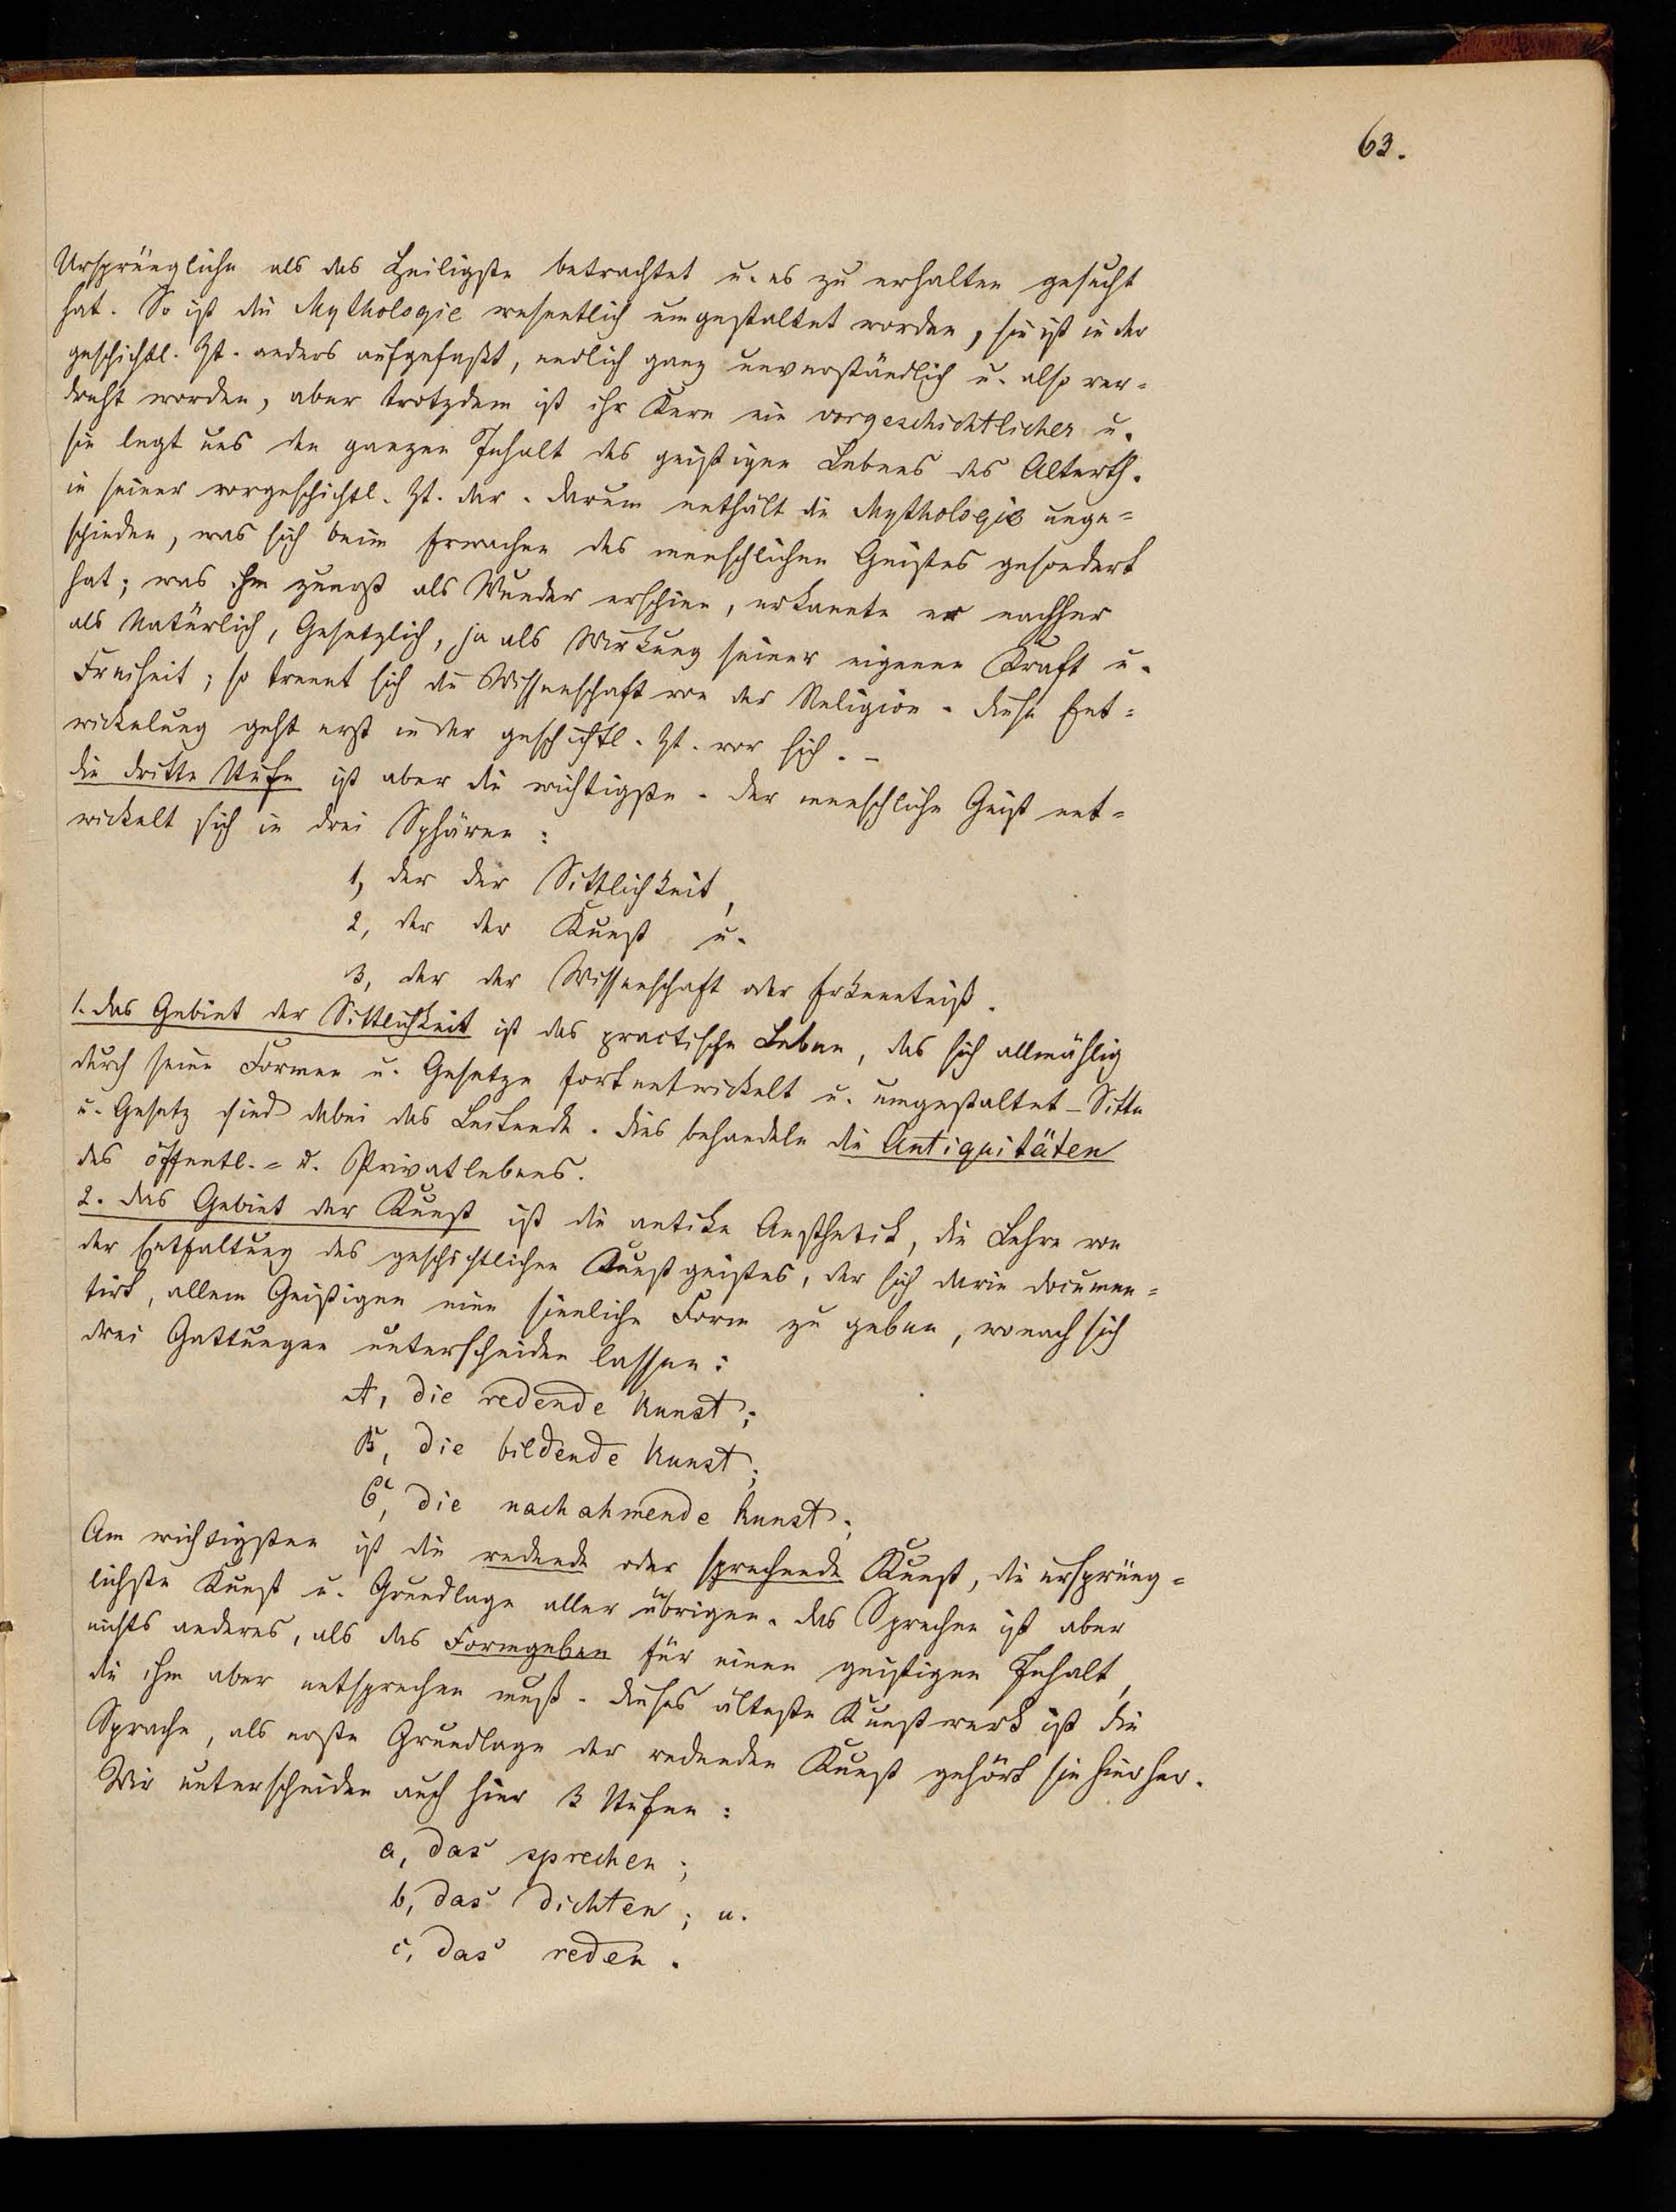 63.
Ursprüngliche als das Heiligste betrachtet u. es zu erhalten gesucht
hat. So ist die Mythologie wesentlich umgestaltet worden, sie ist in der
geschichtl. Zt. anders aufgefaßt, endlich ganz unverständlich u. also ver-
dreht worden, aber trotzdem ist ihr Kern ein vorgeschichtlicher u.
sie legt uns den ganzen Inhalt des geistigen Lebens des Alterth.
in seiner vorgeschichtl. Zt. dar. Darum enthält die Mythologie unge-
schieden, was sich beim Erwachen des menschlichen Geistes gesondert
hat; was ihm zuerst als Wunder erschien, erkannte er nachher
als Natürlich, Gesetzlich, ja als Wirkung seiner eigenen Kraft u.
Freiheit; so trennt sich die Wissenschaft von der Religion. Diese Ent-
wickelung geht erst in der geschichtl. Zt. vor sich. –
Die dritte Stufe ist aber die wichtigste. Der menschliche Geist ent-
wickelt sich in drei Sphären:
1, der der Sittlichkeit,
2, der der Kunst u.
3, der der Wissenschaft oder Erkenntniß.
1. Das Gebiet der Sittlichkeit ist das practische Leben, das sich allmählig
durch seine Formen u. Gesetze fortentwickelt u. umgestaltet – Sitte
u. Gesetz sind dabei das Leitende. Dies behandeln die Antiquitäten
des öffentl.- u. Privatlebens.
2. Das Gebiet der Kunst ist die antike Aesthetik, die Lehre von
der Entfaltung des geschichtlichen Kunstgeistes, der sich darin documen-
tirt, allem Geistigen eine sinnliche Form zu geben, wonach sich
drei Gattungen unterscheiden lassen:
A, die redende Kunst;
B, die bildende Kunst;
C, die nachahmende Kunst;
Am wichtigsten ist die redende oder sprechende Kunst, die ursprüng-
lichste Kunst u. Grundlage aller übrigen. Das Sprechen ist aber
nichts anderes, als das Formgeben für einen geistigen Inhalt,
die ihm aber entsprechen muß. Dieses älteste Kunstwerk ist die
Sprache, als erste Grundlage der redenden Kunst gehört sie hierher.
Wir unterscheiden auch hier 3 Stufen:
a, das sprechen;
b, das dichten; u.
c, das reden.